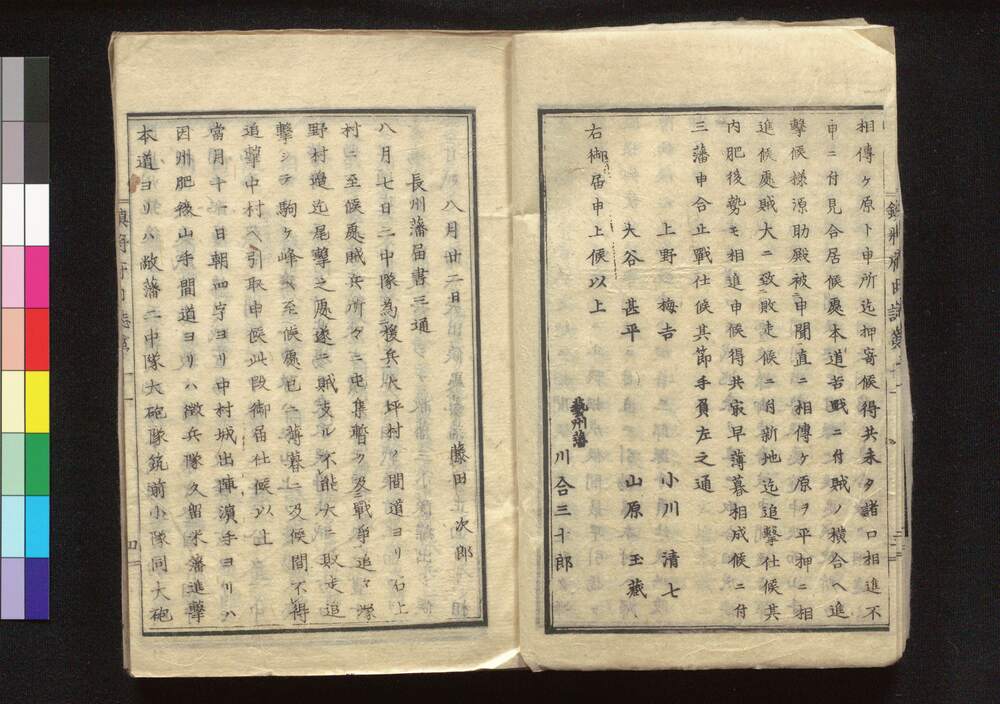 相傳ヶ原ト申所迄押寄候得共未タ諸口相進不
申ニ付見合居候處本道苦戰ニ付賊ノ横合ヘ進
撃候様源助殿被申聞直ニ相傳ヶ原ヲ平押ニ相
進候處賊大ニ致敗走候ニ付新地迄追撃仕候其
内肥後勢モ相進申候得共最早薄暮相成候ニ付
三藩申合止戰仕候其節手負左之通
上野梅吉 小川清七
大谷甚平 山原玉藏
右御届申上候以上
藝州藩
川合三十郎
八月廿二日 藤田次郎
長州藩届書三通
八月七日二中隊為援兵大坪村ノ間道ヨリ石上
村ニ至候處賊兵所々ニ屯集暫ク及戰爭追々塚
野村邊迄尾撃之處遂ニ賊支ル不能大ニ敗走追
撃シテ駒ヶ峰ヘ至候處已ニ薄暮ニ及候間不得
追撃中村ヘ引取申候此段御届仕候以上
當月十一日朝四字ヨリ中村城出陣濱手ヨリハ
因州肥後山手間道ヨリハ徴兵隊久留米藩進撃
本道ヨリハ敝藩二中隊大砲隊筑前小隊同大砲
三
四